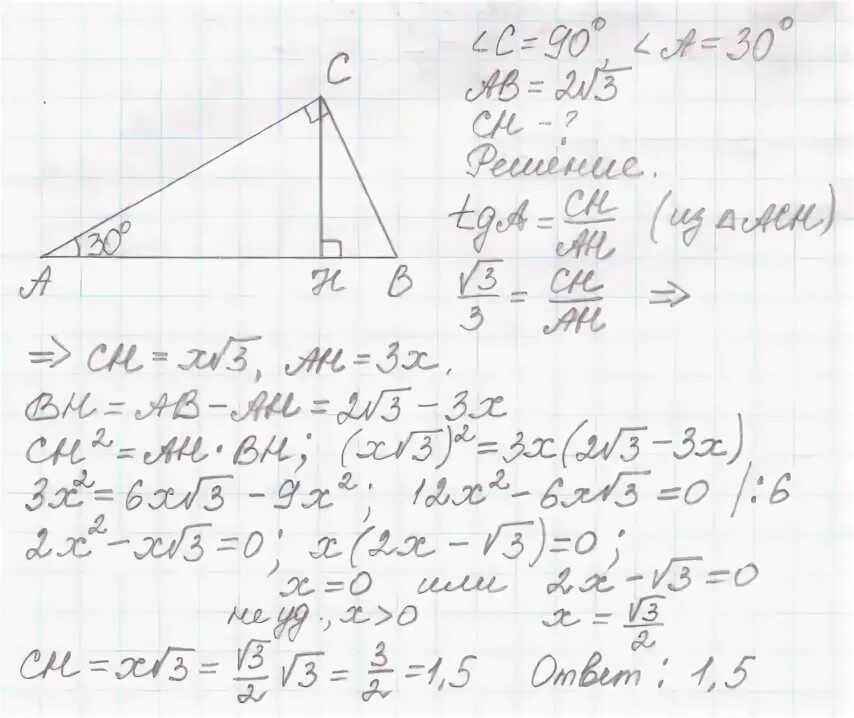 C
30°
A H B
∠C = 90°, ∠A = 30°
AB = 2√3
CH - ?
Решение.
tgA = CH/AH (из △ACH)
√3/3 = CH/AH ⇒
⇒ CH = x√3, AH = 3x.
BH = AB - AH = 2√3 - 3x
CH² = AH · BH; (x√3)² = 3x(2√3 - 3x)
3x² = 6x√3 - 9x²; 12x² - 6x√3 = 0 /:6
2x² - x√3 = 0; x(2x - √3) = 0;
x = 0 или 2x - √3 = 0
не уд., x > 0 x = √3/2
CH = x√3 = √3/2 √3 = 3/2 = 1,5 Ответ: 1,5